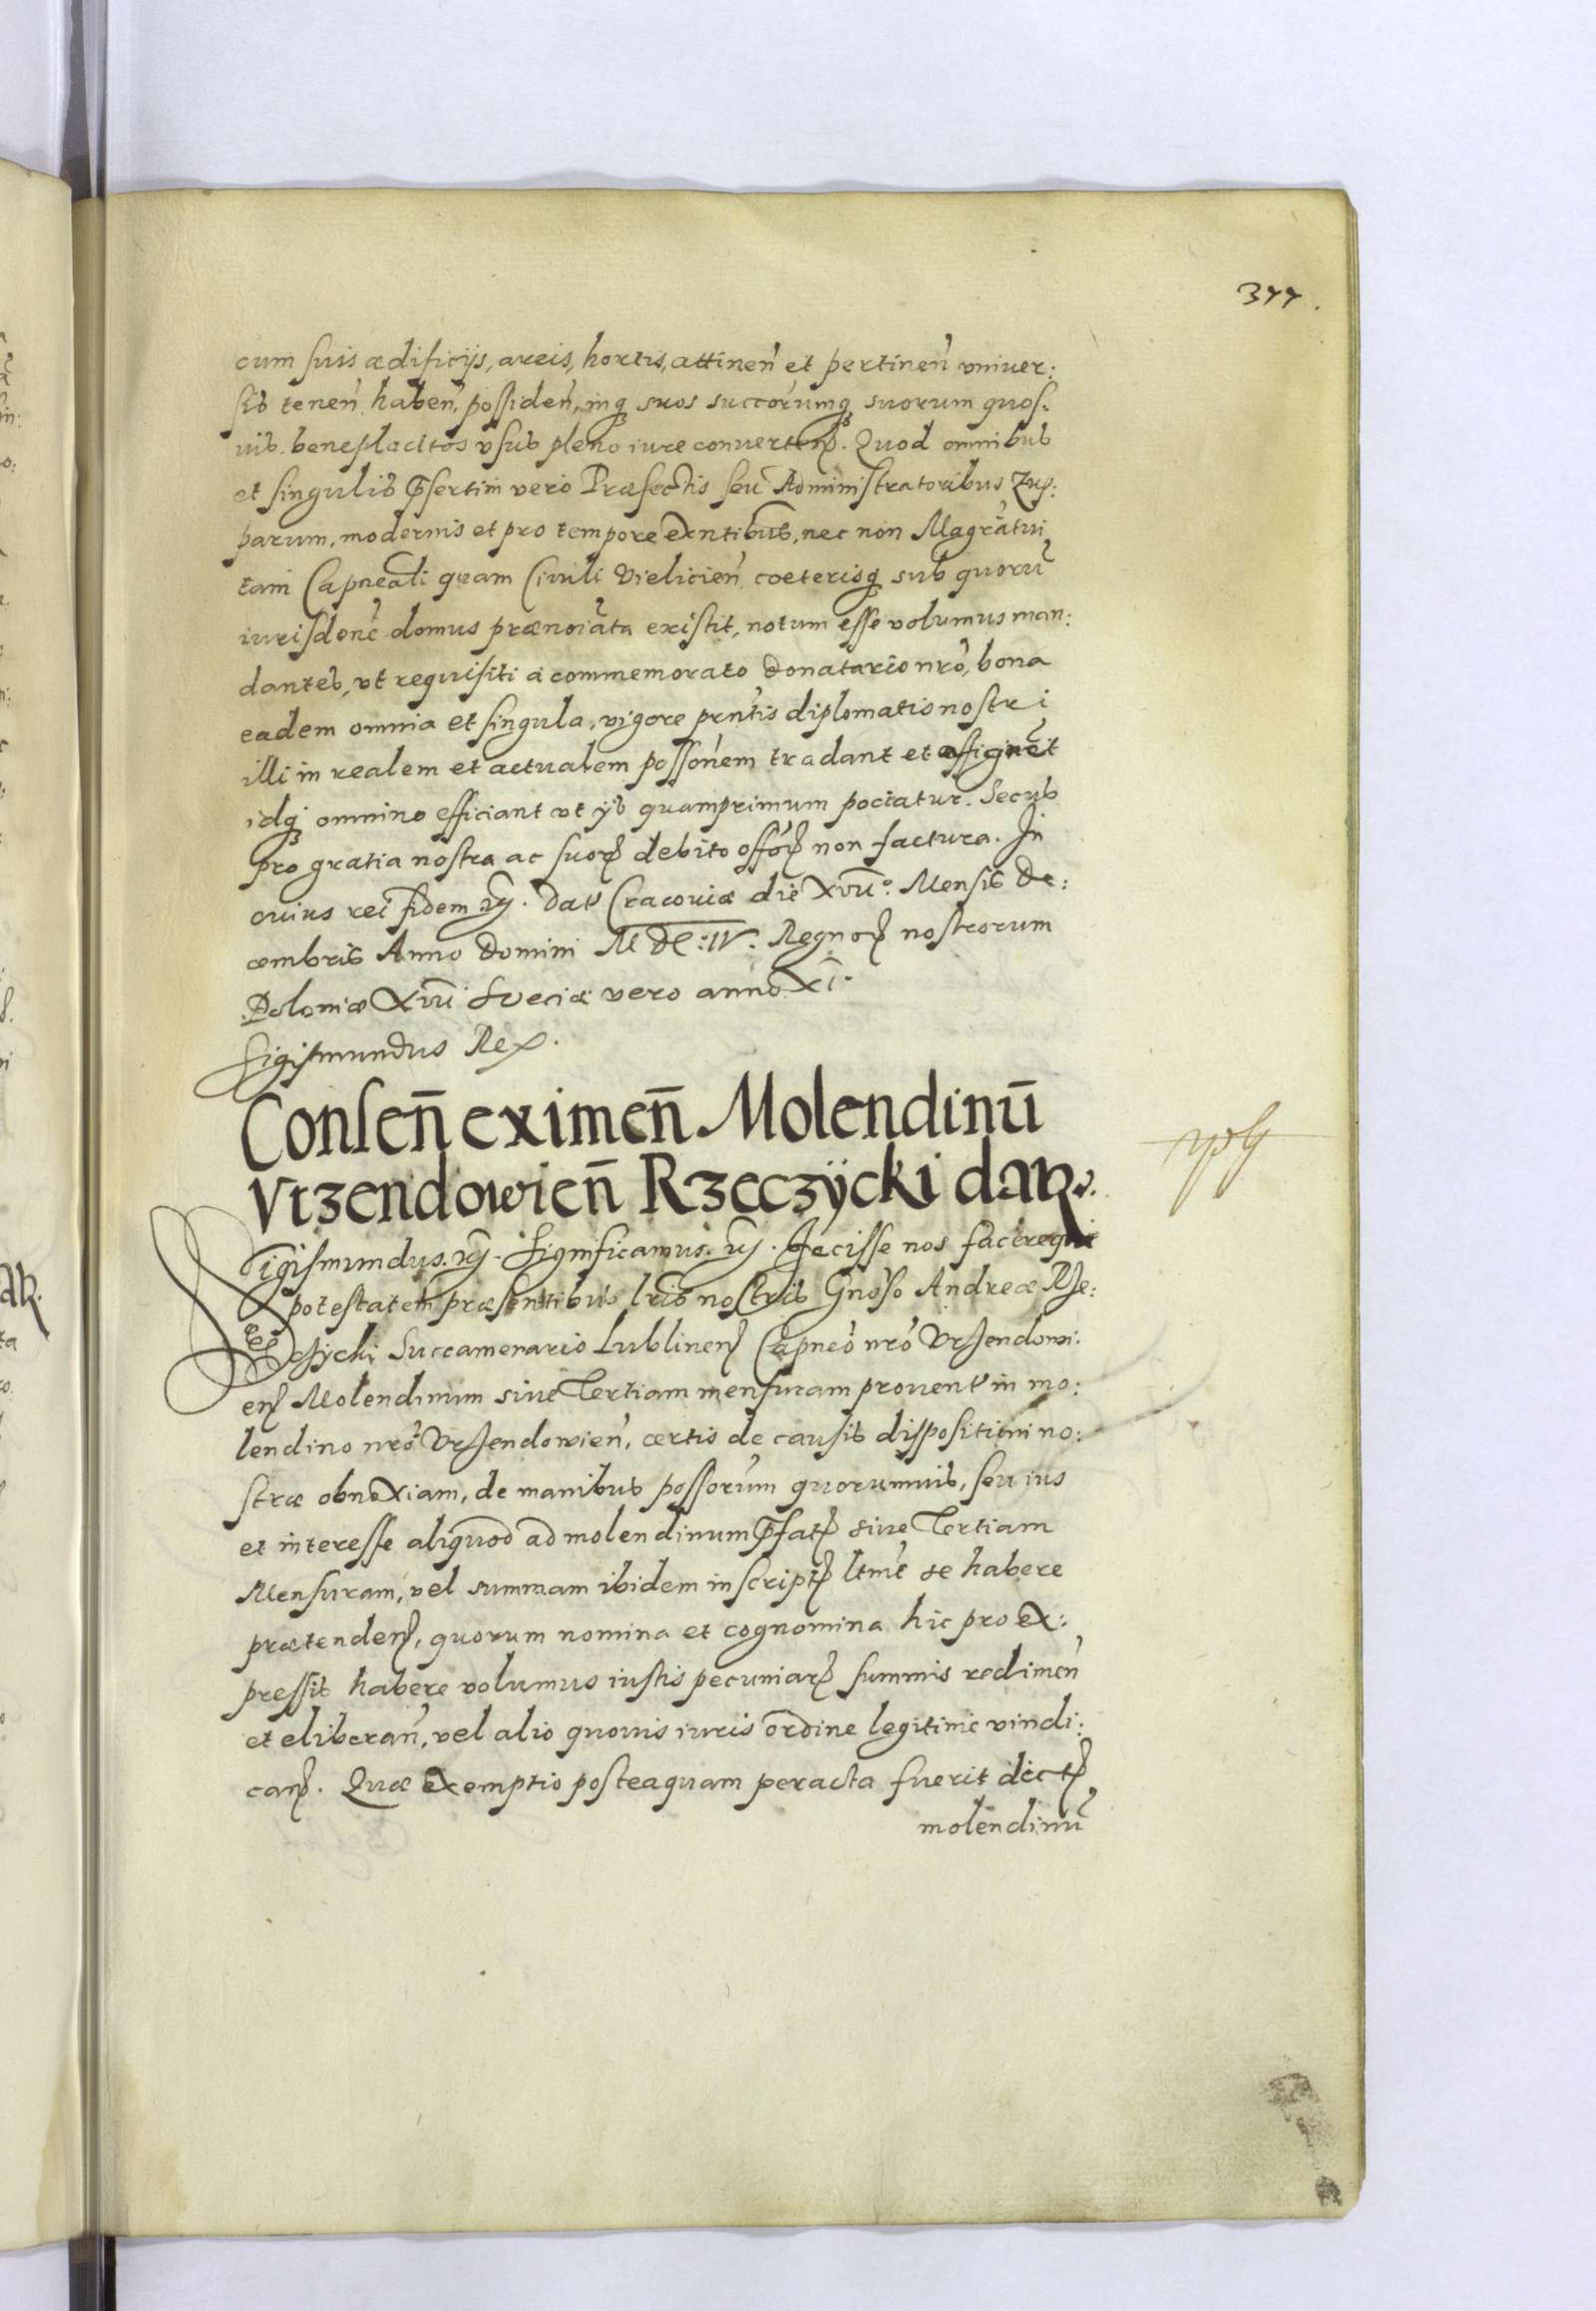 344.
cum suis ædificijs, areis, hortis, attinen̄ et pertinen̄ vniuer:
sis tenen̄ haben̄, possiden̄, inq3 suos succorumq3 suorum quos:
uis beneplacitos vsus pleno iure conuerten. Quod omnibus
et singulis p̄sertim vero Præfectis seu Administratoribus Zup:
parum, modernis et pro tempore exntibus, nec non Magr̄atui
tam Capneali quam Ciuili Vielicien̄ coeterisq3 sub quorū
iurisdonē domus prænoīata existit, notum esse volumus man:
dantes, vt requisiti a commemorato Donatario nrō, bona
eadem omnia et singula, vigore prn̄tis diplomatis nostri
illi in realem et actualem possonem tradant et assignēt
idq3 omnino efficiant vt ijs quamprimum pociatur. Secus
pro gratia nostra ac suor debito offor non factura. In
cuius rei fidem etc. Dat Cracouiæ die XVII. Mensis De:
cembris Anno Domini M DC: IV. Regnor nostrorum
Poloniæ XVII Sueciæ vero anno XI.
Sigismundus Rex.
Consen̄ eximen̄ Molendinū
Vrzendowien̄ Rzeczÿcki dar.
Sigismundus etc. Significamus etc. Fecisse nos
potestatem præsentibus lris nostris Gnoso Andreæ Rze:
czycki Succamerario Lublinen Capneo nrō Vrzendowi:
en Molendinum siue Tertiam mensuram prouent in mo:
lendino nrō Vrzendowien̄, certis de causis dispositioni no:
stræ obnoxiam, de manibus possorum quorumuis, seu ius
et interesse aliquod ad molendinum p̄fat siue Tertiam
Mensuram, vel summam ibidem inscript ltmē se habere
prætenden, quorum nomina et cognomina hic pro ex:
pressis habere volumus iustis pecuniar summis redimen̄
et eliberan̄, vel alio quouis iuris ordine legitime vindi:
can. Quæ exemptio posteaquam peracta fuerit dict
molendinū